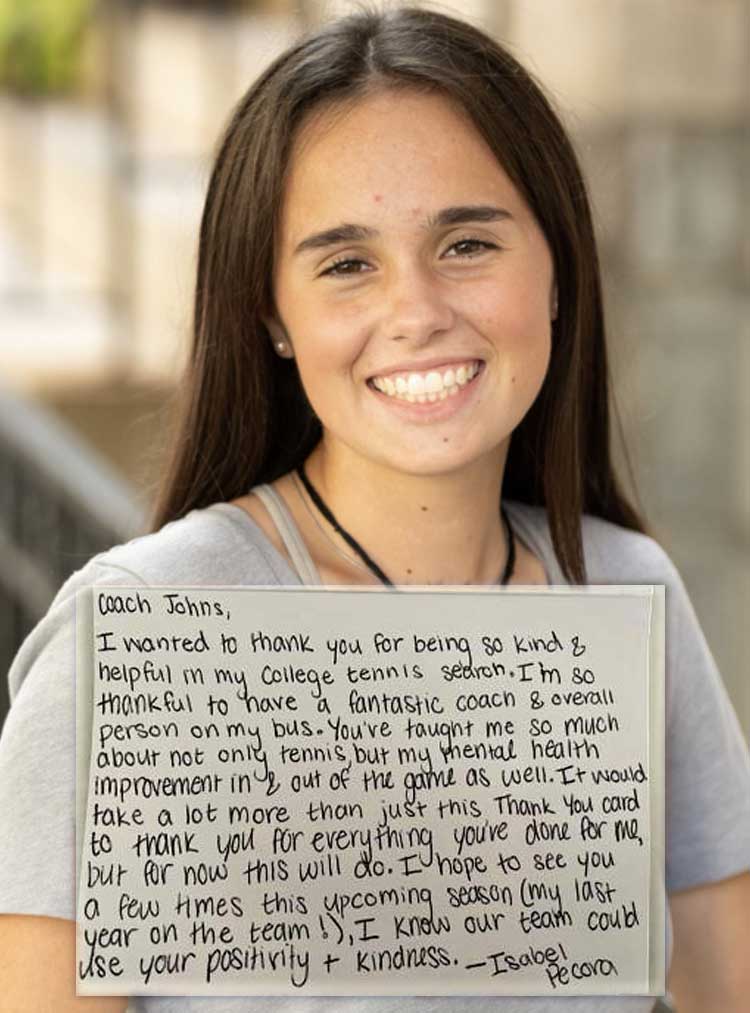 Coach Johns,
I wanted to thank you for being so kind &
helpful in my college tennis search. I'm so
thankful to have a fantastic coach & overall
person on my bus. You've taught me so much
about not only tennis, but my mental health
improvement in & out of the game as well. It would
take a lot more than just this Thank You card
to thank you for everything you've done for me,
but for now this will do. I hope to see you
a few times this upcoming season (my last
year on the team!), I know our team could
use your positivity + kindness. -Isabel
Pecora